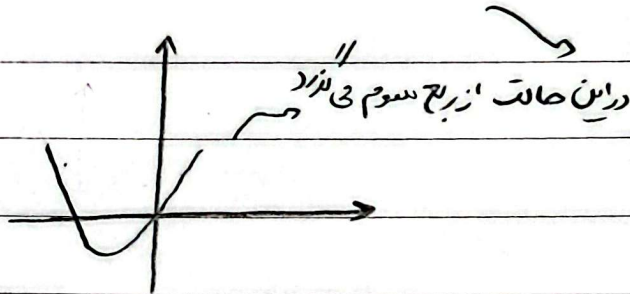 در این حالت از ربع سوم می گذرد